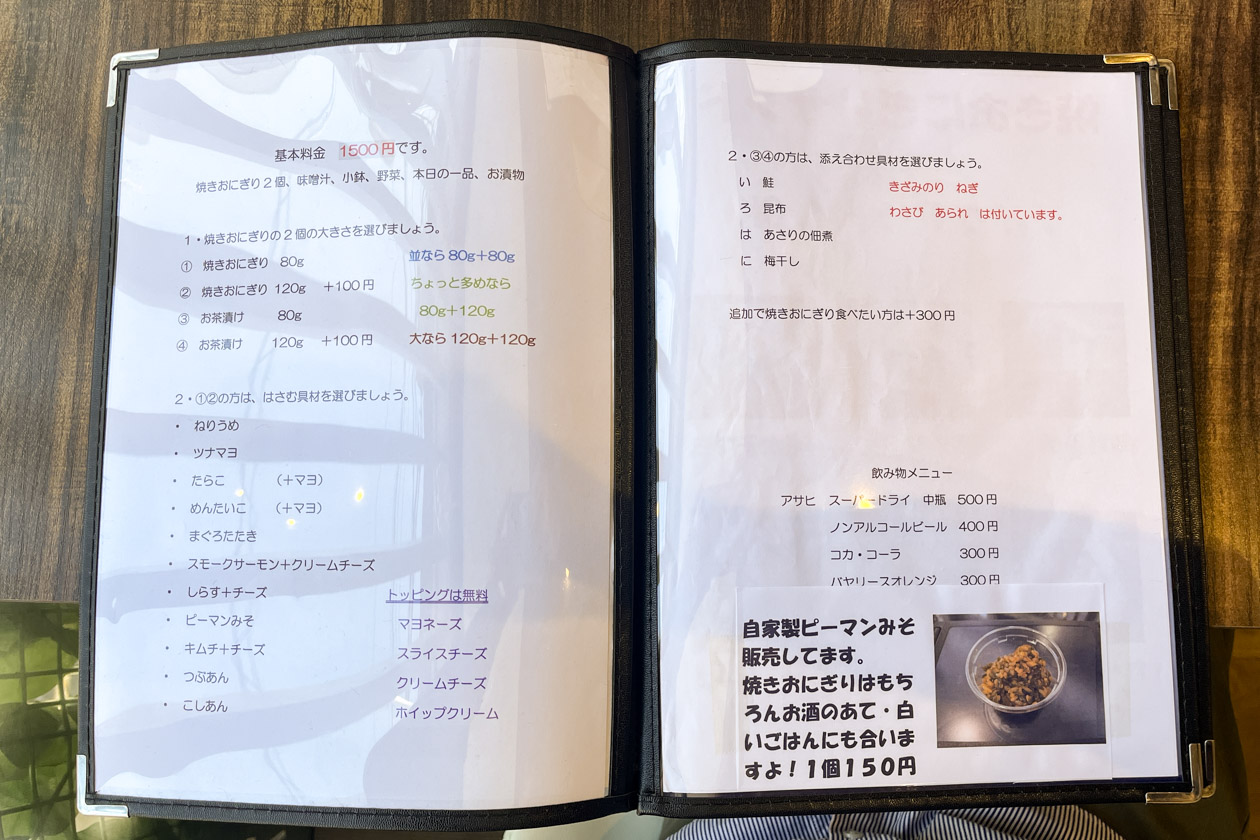 基本料金 1500円です。
焼きおにぎり2個、味噌汁、小鉢、野菜、本日の一品、お漬物
1・焼きおにぎりの2個の大きさを選びましょう。
① 焼きおにぎり 80g
② 焼きおにぎり 120g +100円
③ お茶漬け 80g
④ お茶漬け 120g +100円
並なら 80g+80g
ちょっと多めなら
80g+120g
大なら 120g+120g
2・①②の方は、はさむ具材を選びましょう。
・ ねりうめ
・ ツナマヨ
・ たらこ (+マヨ)
・ めんたいこ (+マヨ)
・ まぐろたたき
・ スモークサーモン+クリームチーズ
・ しらす+チーズ
・ ピーマンみそ
・ キムチ+チーズ
・ つぶあん
・ こしあん
トッピングは無料
マヨネーズ
スライスチーズ
クリームチーズ
ホイップクリーム
2・③④の方は、添え合わせ具材を選びましょう。
い 鮭
ろ 昆布
は あさりの佃煮
に 梅干し
きざみのり ねぎ
わさび あられ は付いています。
追加で焼きおにぎり食べたい方は+300円
飲み物メニュー
アサヒ スーパードライ 中瓶 500円
ノンアルコールビール 400円
コカ・コーラ 300円
バヤリースオレンジ 300円
自家製ピーマンみそ
販売してます。
焼きおにぎりはもち
ろんお酒のあて・白
いごはんにも合いま
すよ！1個150円